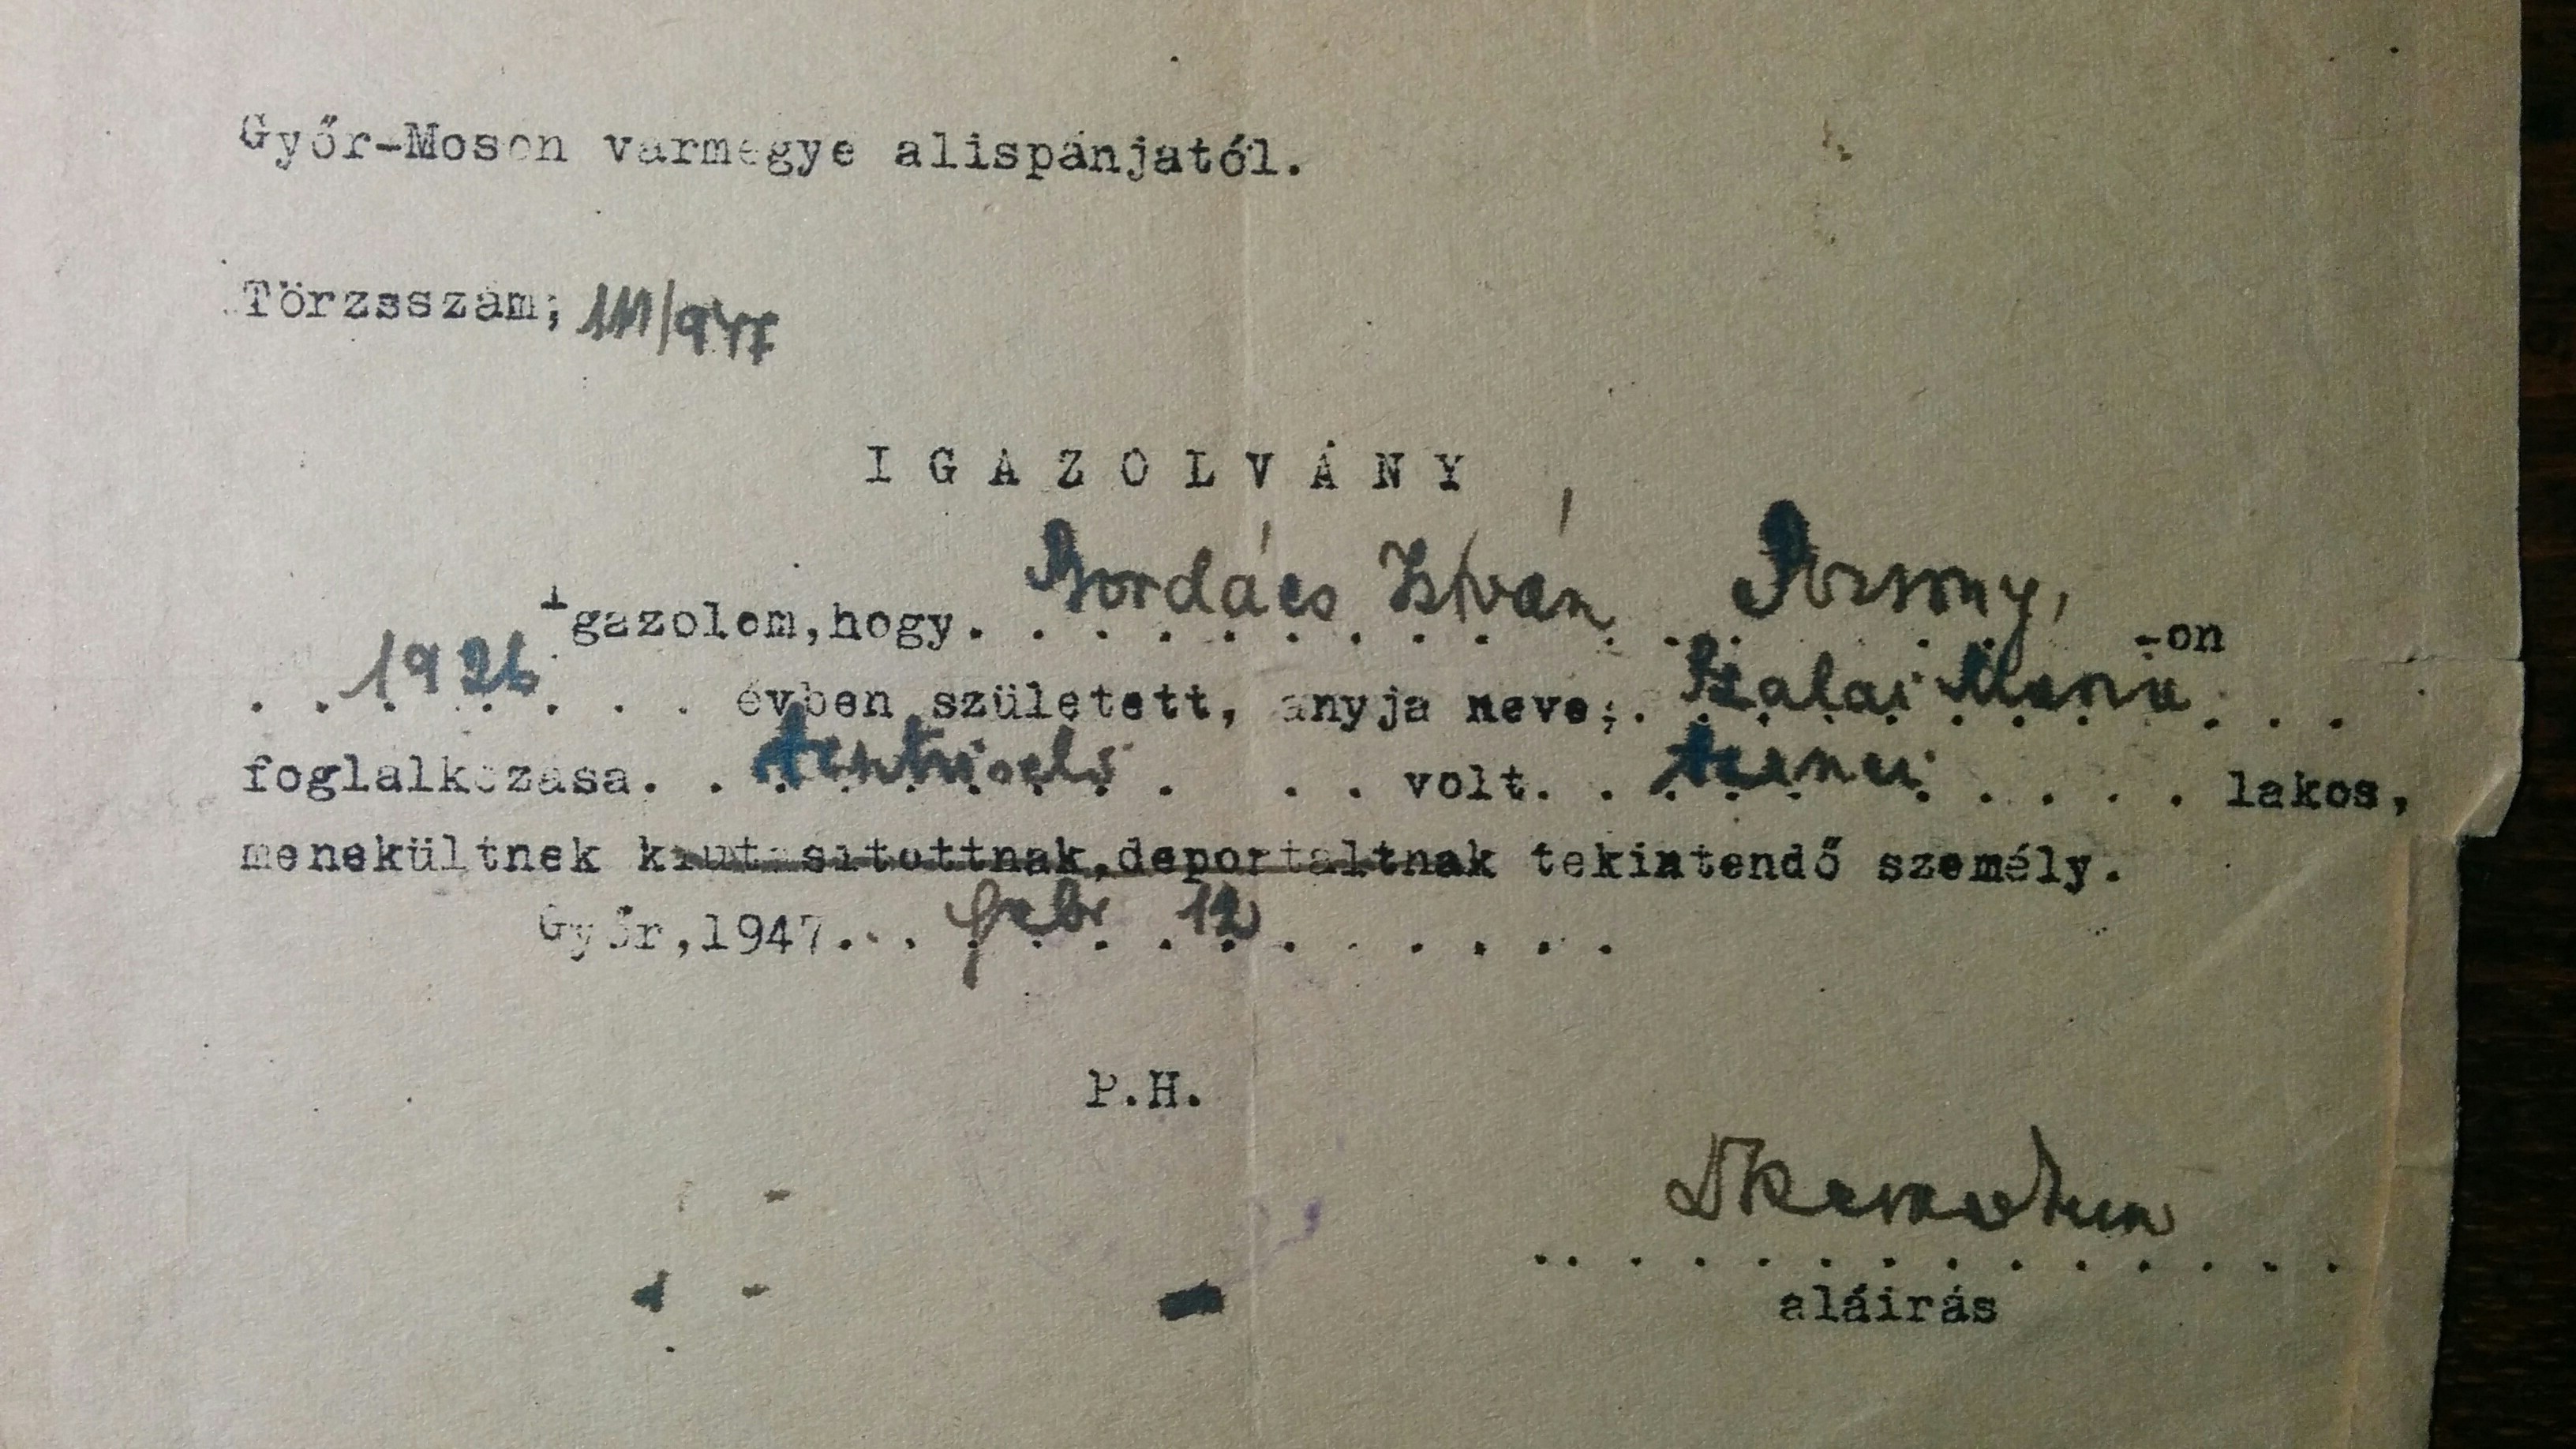 Győr-Moson vármegye alispánjatól.
Törzsszám; 111/947
IGAZOLVÁNY
Igazolom, hogy. Bordács István Pozsony, -on
1926 évben született, anyja neve; Szalai Mária
foglalkozása. tisztviselő volt. lakos,
menekültnek kiutasitottnak, deportáltnak tekintendő személy.
Győr, 1947. febr 12
P.H.
aláirás